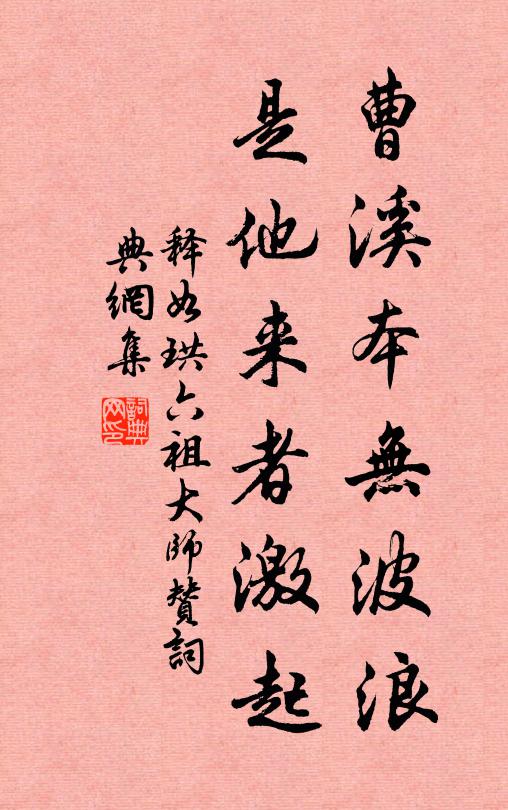 曹溪本無波浪
是他来者激起
释如珙六祖大師贊詞
典網集
詞典網印